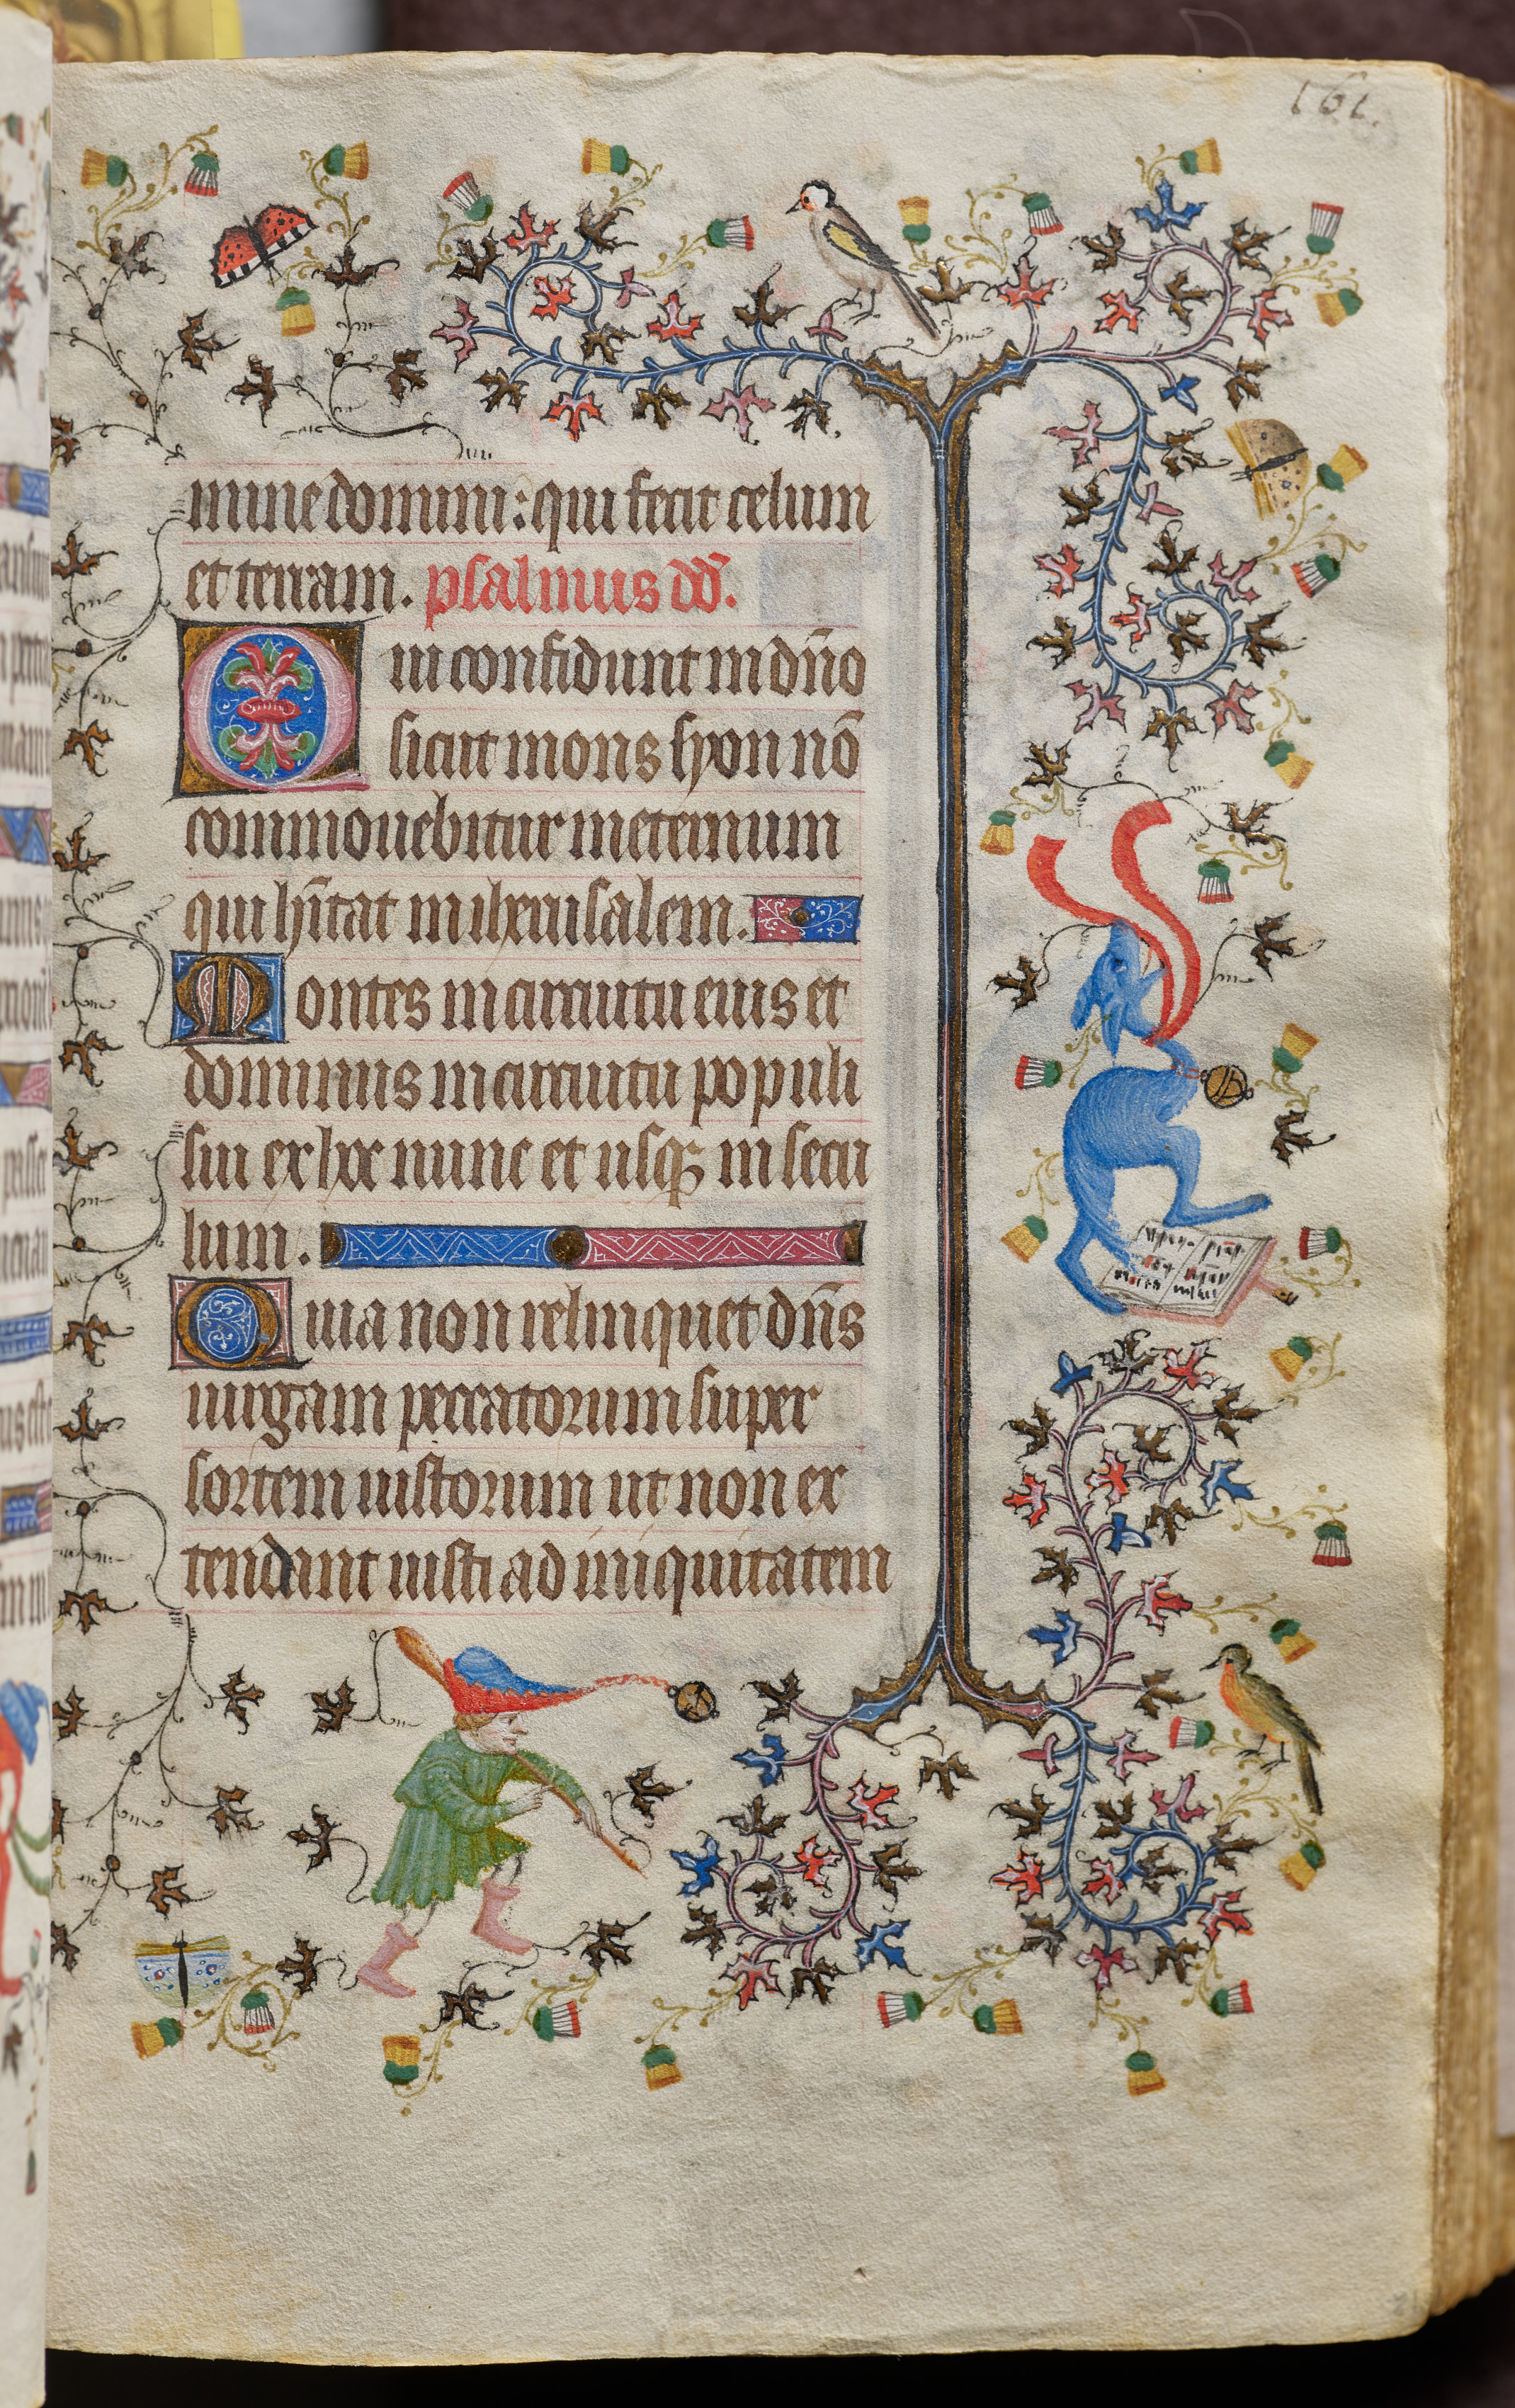 161.
mine domini: qui fecit celum
et terram. psalmus dd̄.
Qui confidunt in dn̄o
sicut mons syon nō
commouebitur in eternum
qui hītat in iherusalem.
Montes in circuitu eius et
dominus in circuitu populi
sui ex hoc nunc et usqꝫ in secu
lum.
Quia non relinquet dn̄s
uirgam peccatorum super
sortem iustorum ut non ex
tendant iusti ad iniquitatem